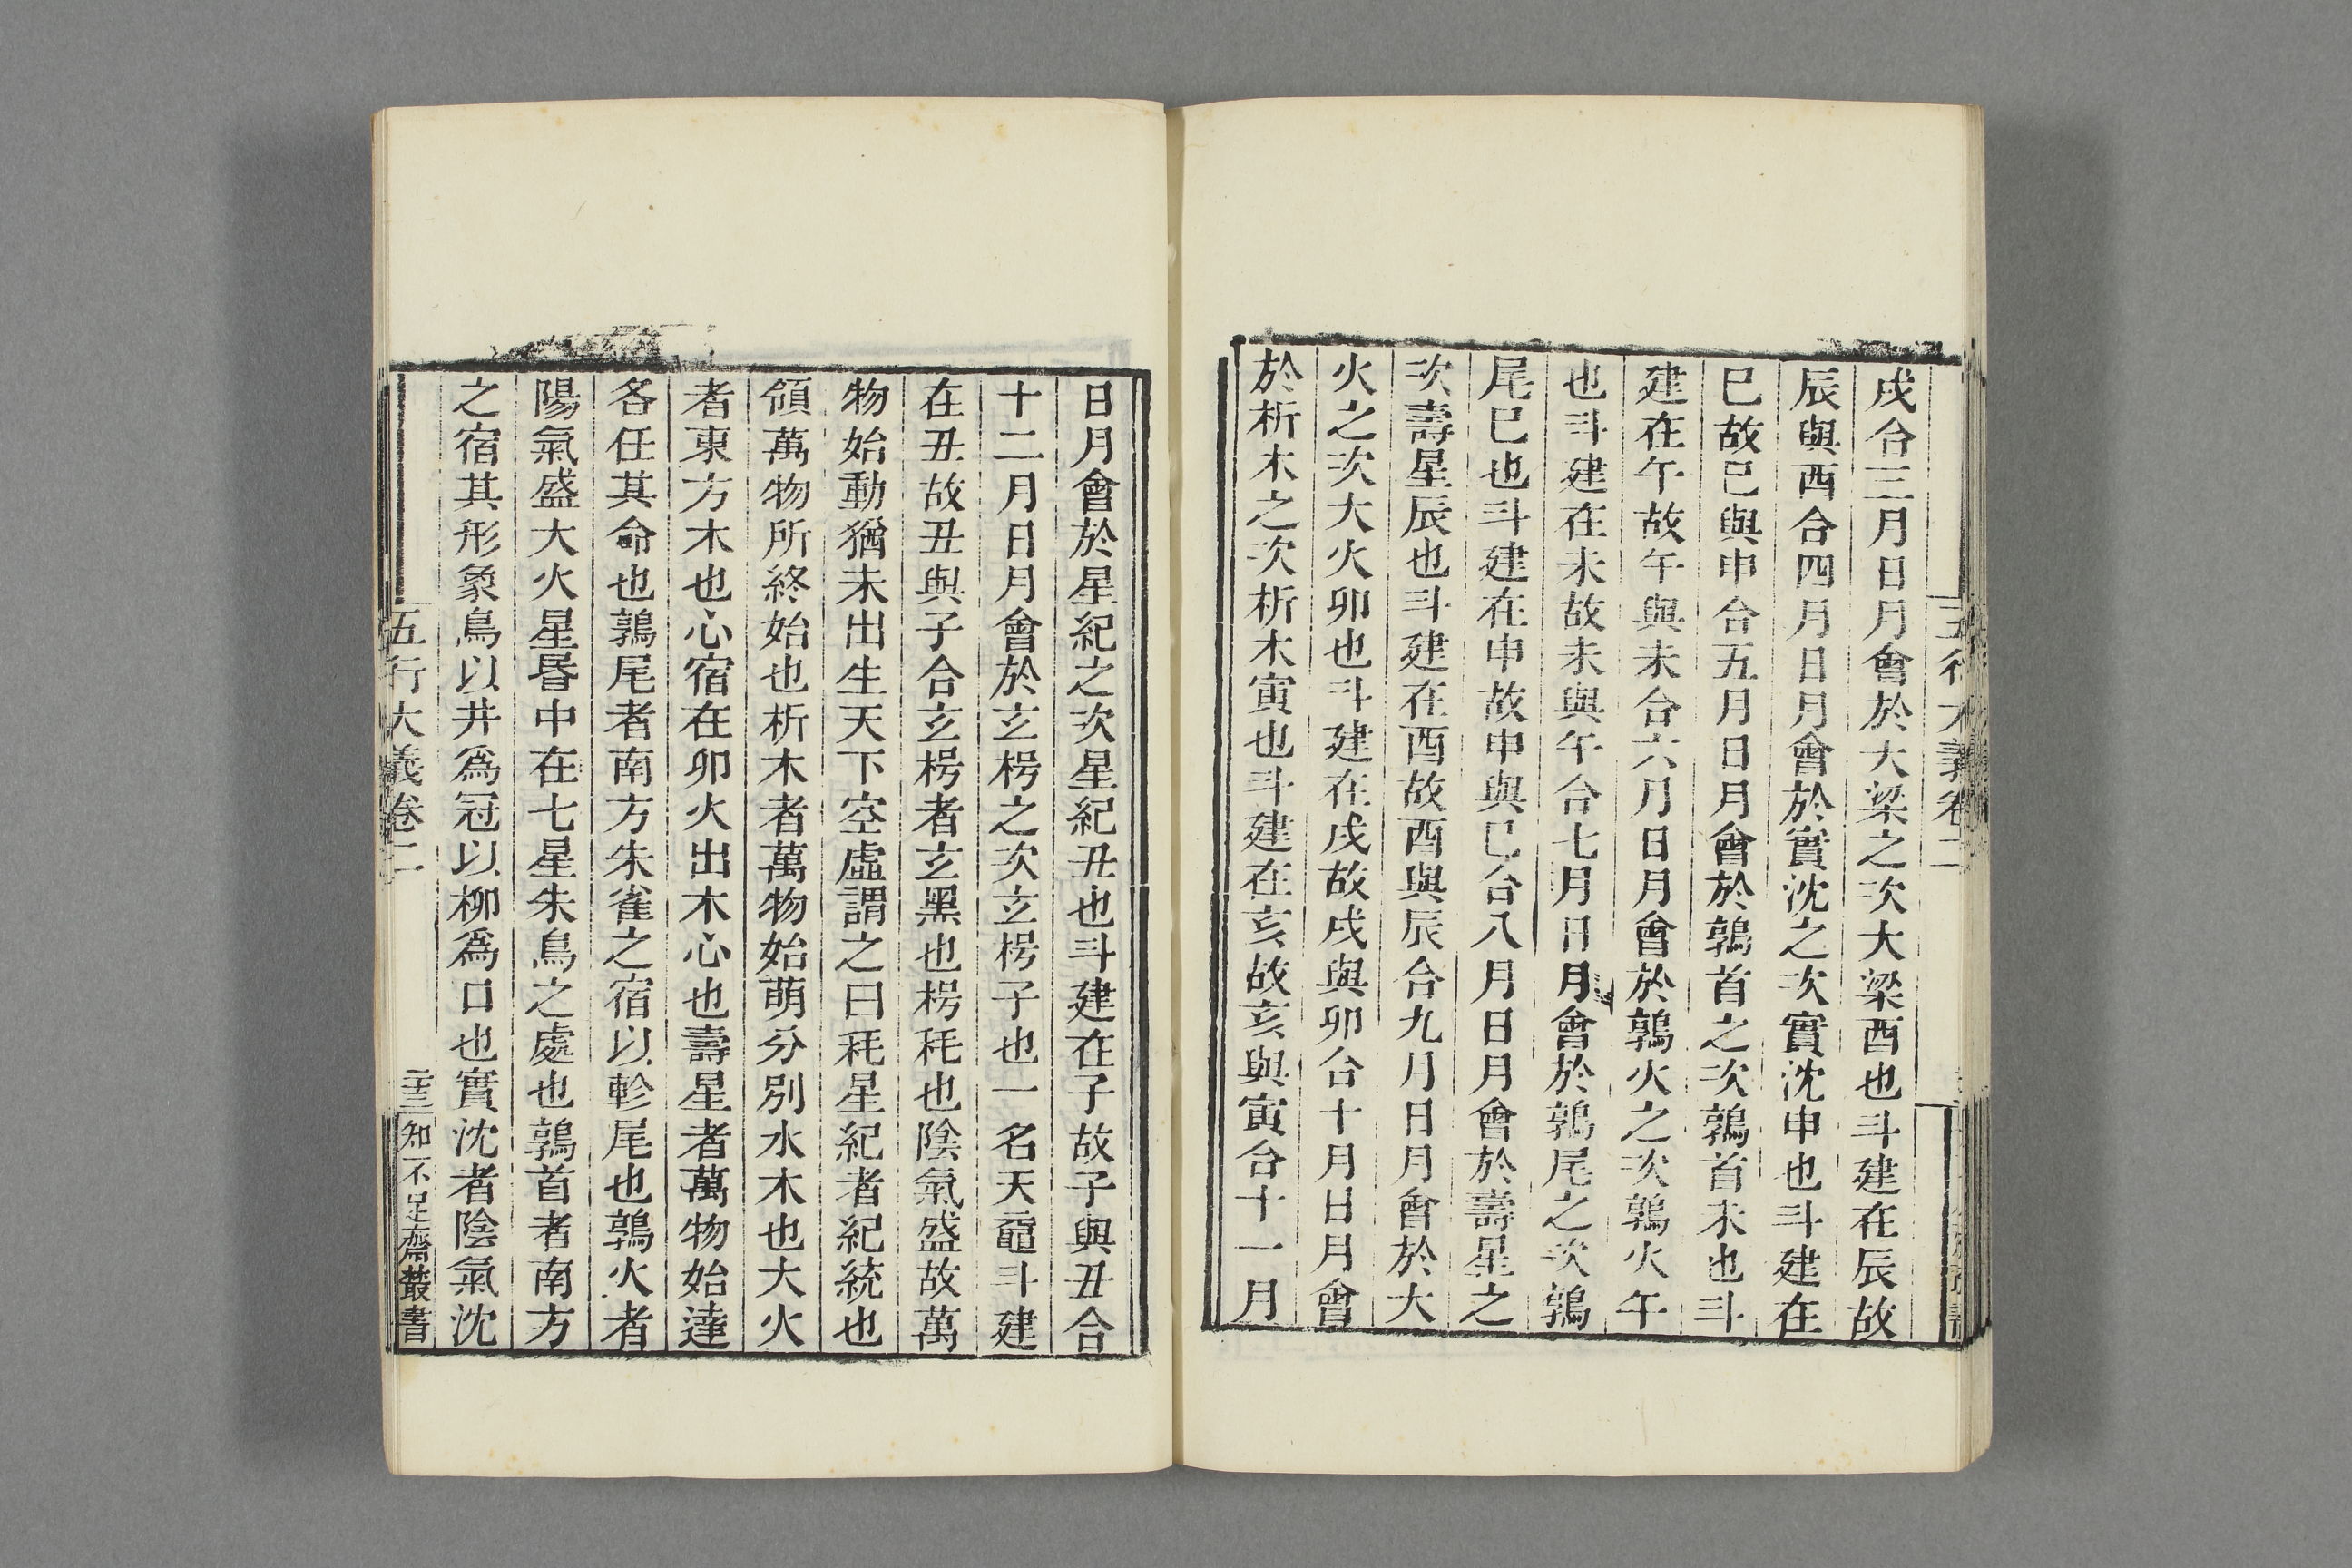 戌合三月日月會於大梁之次大梁酉也斗建在辰故
辰與酉合四月日月會於實沈之次實沈申也斗建在
巳故巳與申合五月日月會於鶉首之次鶉首未也斗
建在午故午與未合六月日月會於鶉火之次鶉火午
也斗建在未故未與午合七月日月會於鶉尾之次鶉
尾巳也斗建在申故申與巳合八月日月會於壽星之
次壽星辰也斗建在酉故酉與辰合九月日月會於大
火之次大火卯也斗建在戌故戌與卯合十月日月會
於析木之次析木寅也斗建在亥故亥與寅合十一月
日月會於星紀之次星紀丑也斗建在子故子與丑合
十二月日月會於玄枵之次玄枵子也一名天黿斗建
在丑故丑與子合玄枵者玄黑也枵秏也陰氣盛故萬
物始動猶未出生天下空虛謂之曰秏星紀者紀統也
領萬物所終始也析木者萬物始萌分別水木也大火
者東方木也心宿在卯火出木心也壽星者萬物始達
各任其命也鶉尾者南方朱雀之宿以軫尾也鶉火者
陽氣盛大火星昬中在七星朱鳥之處也鶉首者南方
之宿其形象鳥以井爲冠以柳爲口也實沈者陰氣沈
五行大義卷二 知不足齋叢書